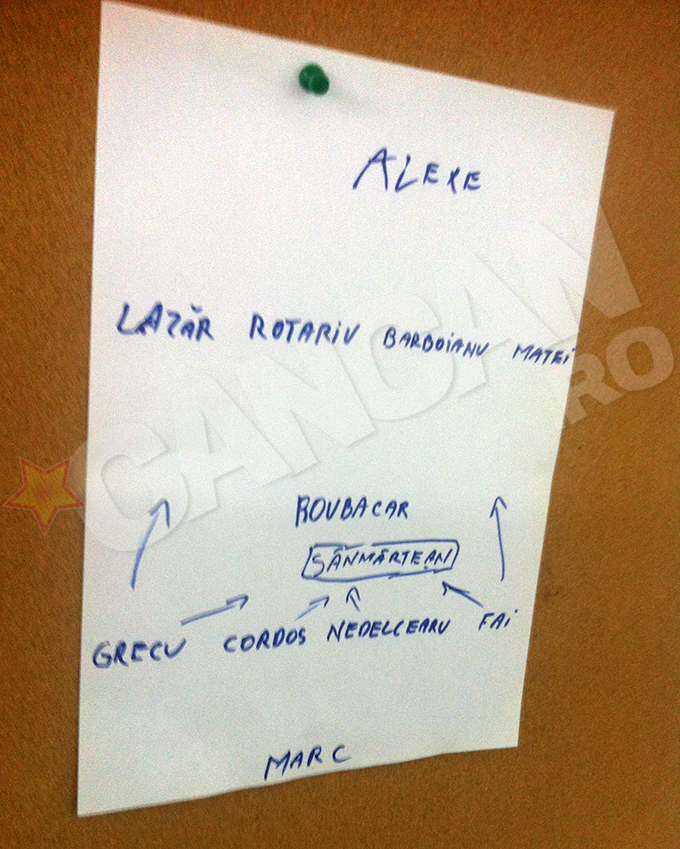 ALEXE
LAZĂR ROTARIU BARBOIANU MATEI
ROUBACAR
SÂNMĂRTEAN
GRECU CORDOS NEDELCEARU FAI
MARC
CANCAN
.RO